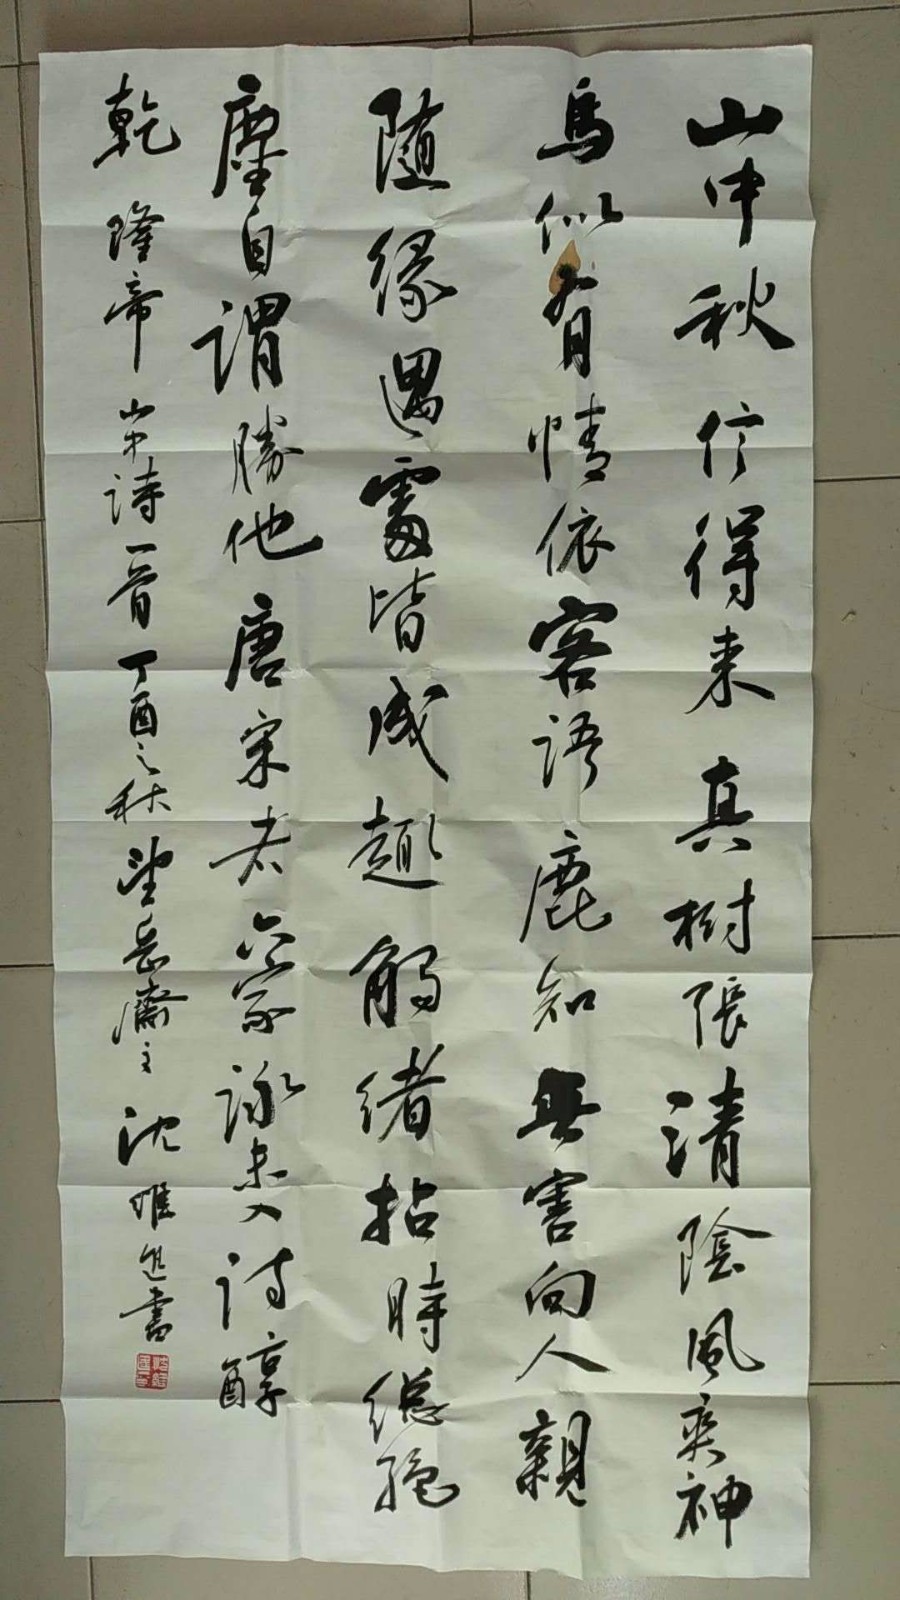 山中秋信得来真樹張清陰風爽神
鳥似有情依客語鹿知無害向人親
随縁遇處皆成趣觸緒拈時總絶
塵自謂勝他唐宋者六家詠未入詩醇
乾隆帝山中詩一首丁酉之秋望岳齋主沈雄進書